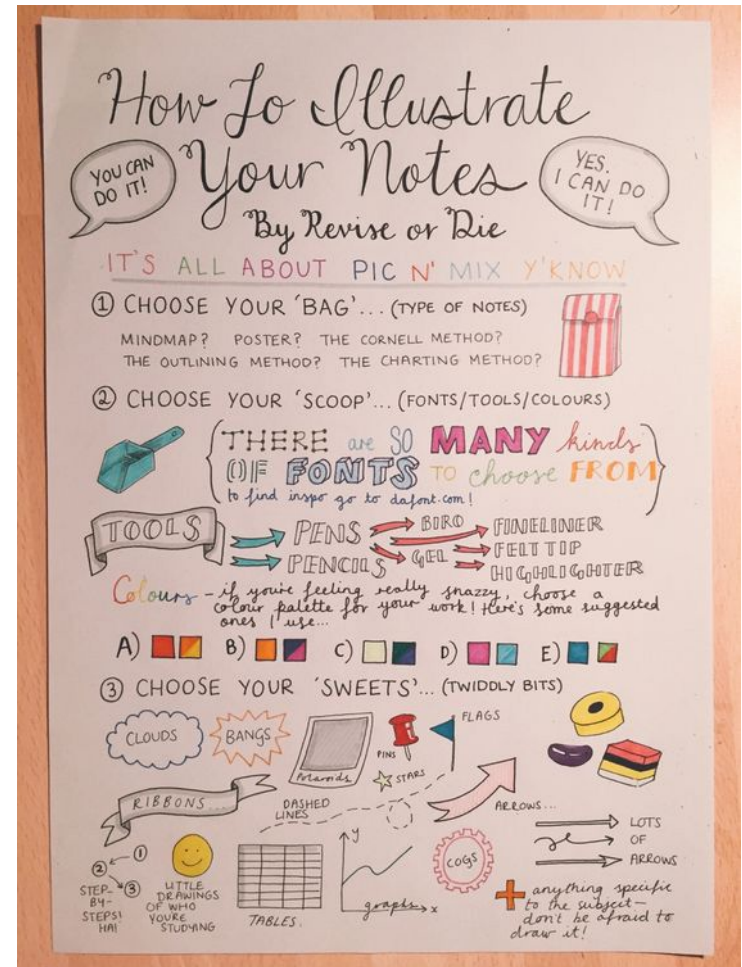 How To Illustrate
Your Notes
YOU CAN
DO IT!
YES.
I CAN DO
IT!
By Revise or Die
IT'S ALL ABOUT PIC N' MIX Y'KNOW
① CHOOSE YOUR 'BAG'... (TYPE OF NOTES)
MINDMAP? POSTER? THE CORNELL METHOD?
THE OUTLINING METHOD? THE CHARTING METHOD?
② CHOOSE YOUR 'SCOOP'... (FONTS/TOOLS/COLOURS)
THERE are SO MANY kinds
OF FONTS TO choose FROM
to find inspo go to dafont.com!
TOOLS
PENS
PENCILS
BIRO
GEL
FINELINER
FELT TIP
HIGHLIGHTER
Colours - if you're feeling really snazzy, choose a
colour palette for your work! Here's some suggested
ones I use...
A) B) C) D) E)
③ CHOOSE YOUR 'SWEETS'... (TWIDDLY BITS)
CLOUDS
BANGS
Polaroids
PINS
STARS
FLAGS
RIBBONS...
DASHED
LINES
ARROWS...
LOTS
OF
ARROWS
①
②
③
STEP-
BY-
STEPS!
HA!
LITTLE
DRAWINGS
OF WHO
YOU'RE
STUDYING
TABLES.
y
graphs
x
COGS
+ anything specific
to the subject—
don't be afraid to
draw it!